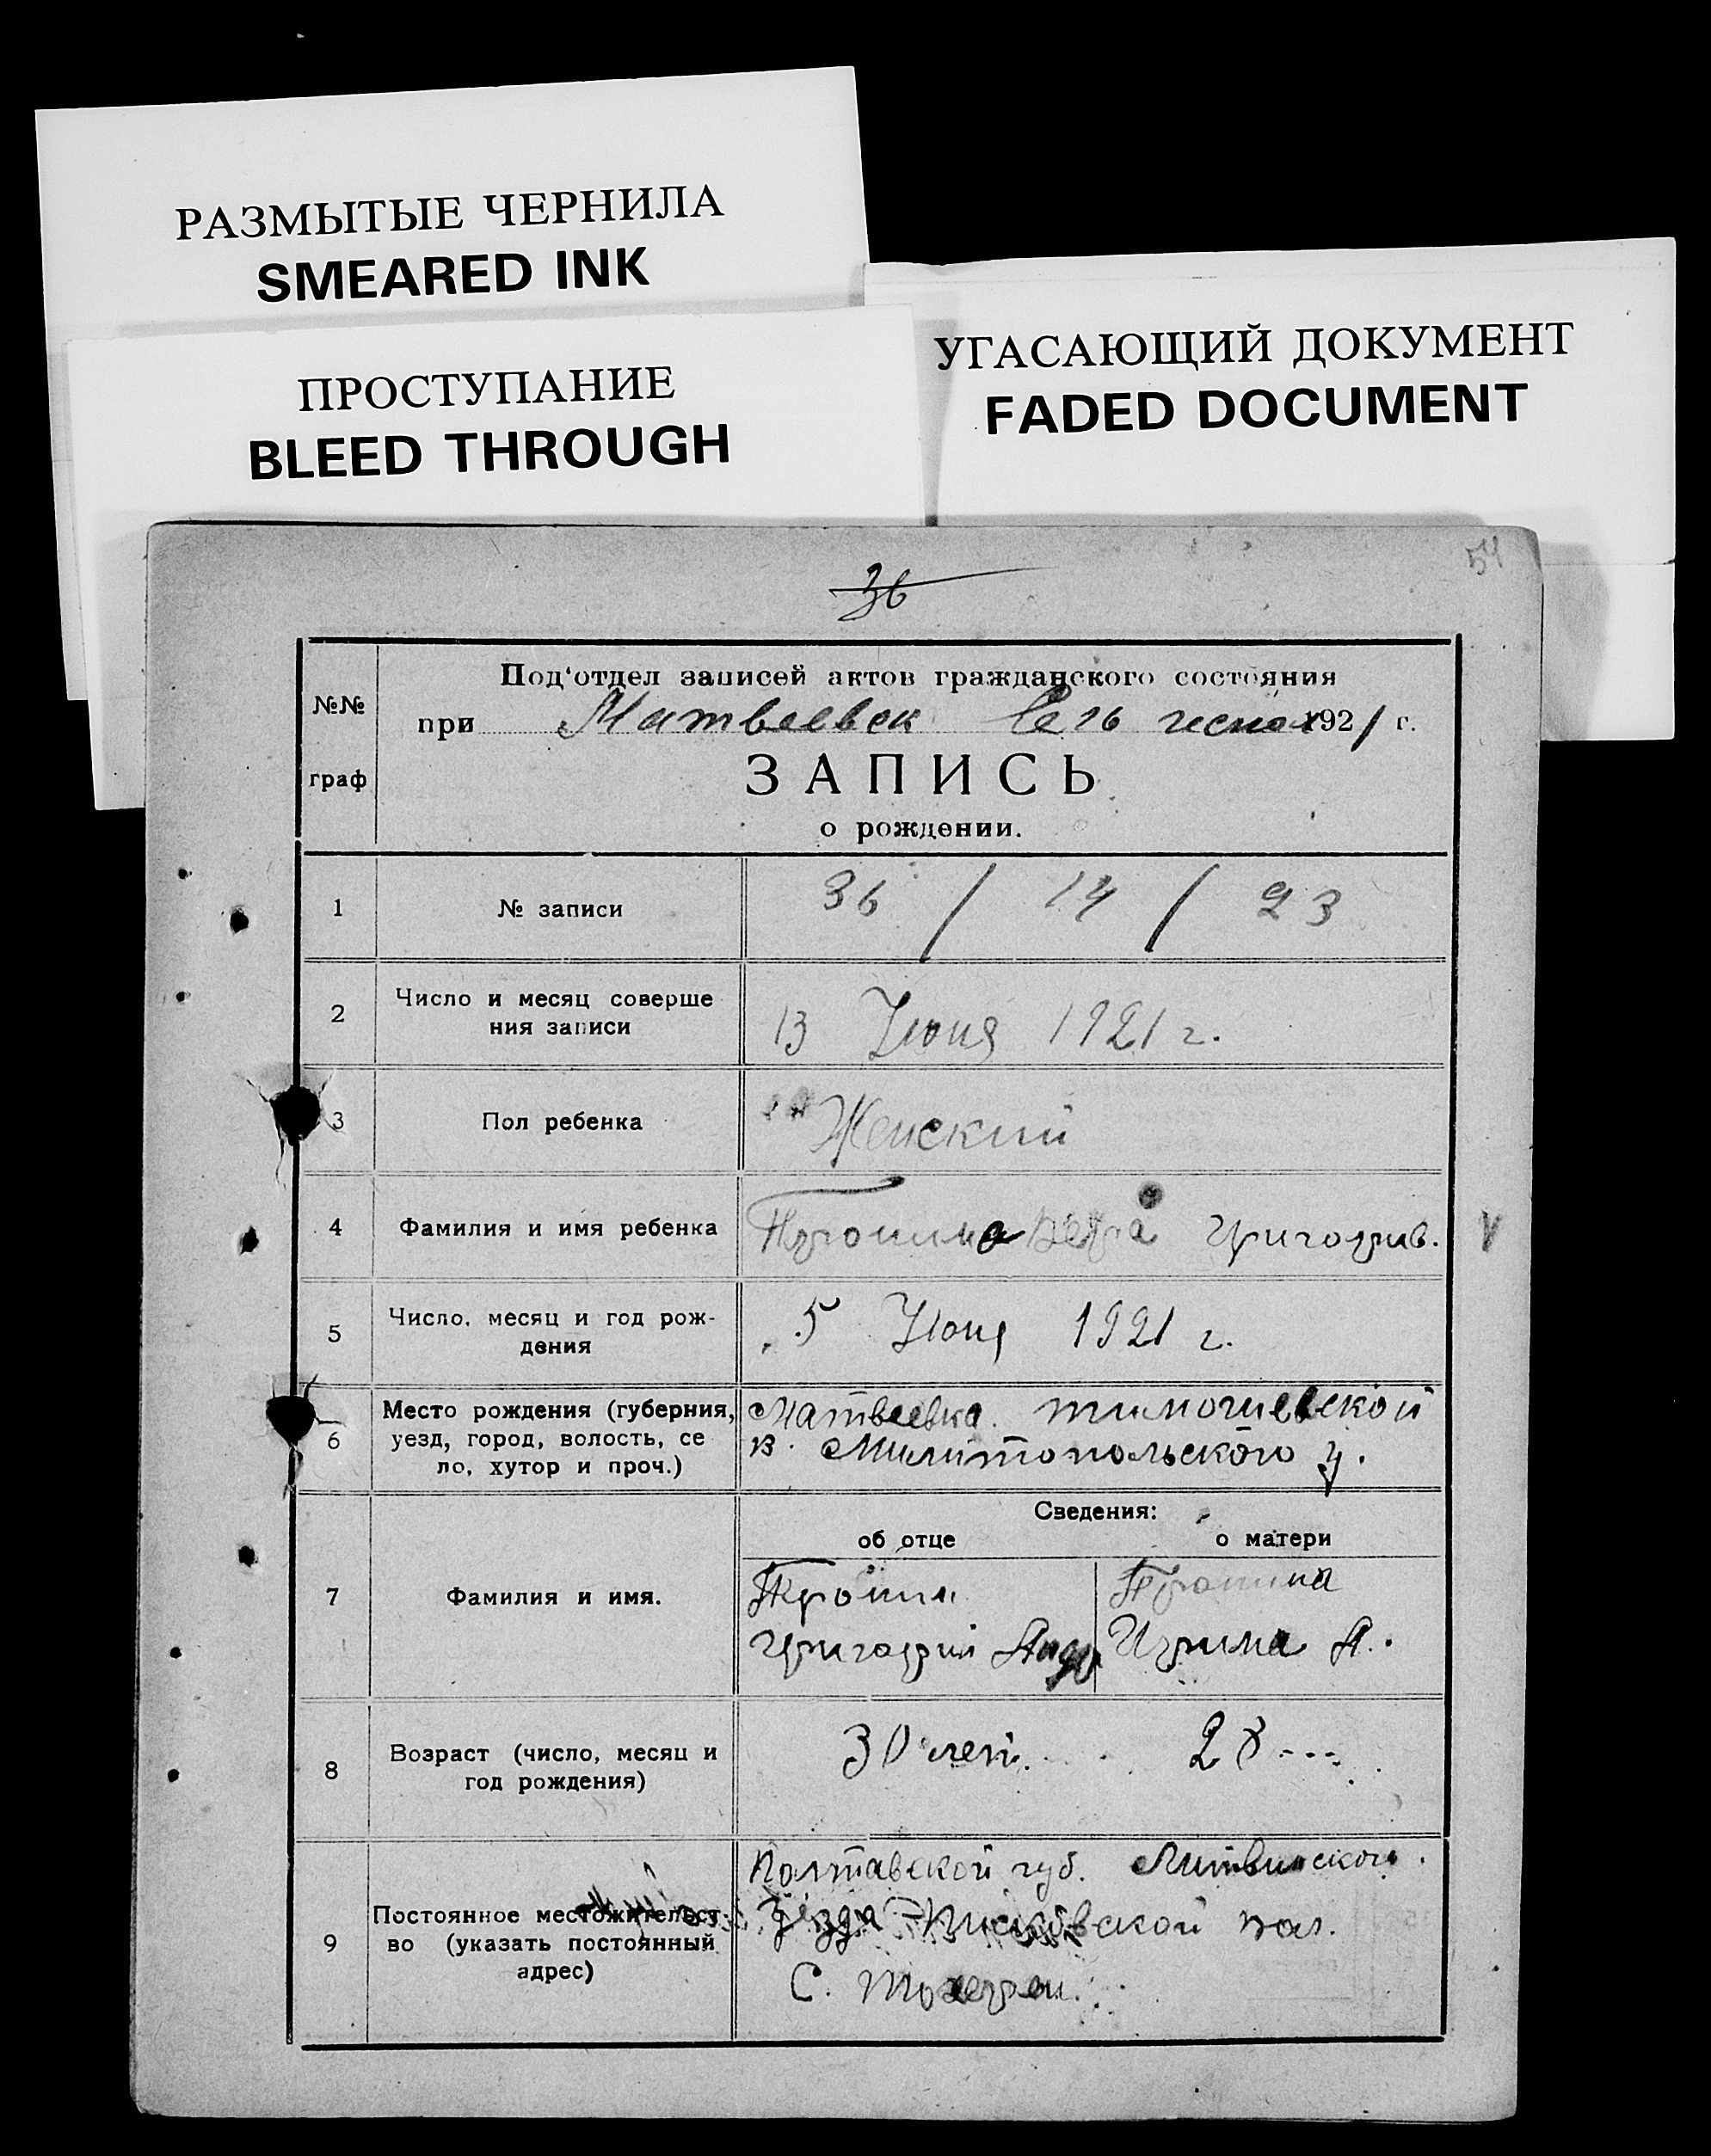 РАЗМЫТЫЕ ЧЕРНИЛА
SMEARED INK
ПРОСТУПАНИЕ
BLEED THROUGH
УГАСАЮЩИЙ ДОКУМЕНТ
FADED DOCUMENT
54
36
№№
граф
Под‘отдел записей актов гражданского состояния
при Матвеевск 1921 г.
ЗАПИСЬ
о рождении.
1 № записи 36 / 14 / 23
2 Число и месяц соверше
ния записи 13 Июня 1921 г.
3 Пол ребенка Женский
4 Фамилия и имя ребенка Тронина Вера Григорив.
V
5 Число, месяц и год рож-
дения 5 Июня 1921 г.
6 Место рождения (губерния,
уезд, город, волость, се
ло, хутор и проч.)
Матвеевка тимошевской
в. Милитопольского у.
Сведения:
об отце о матери
7 Фамилия и имя.
Тронин Тронина
Григорий Андр Ирина А.
8 Возраст (число, месяц и
год рождения)
30 лет. 28
9 Постоянное местожительст-
во (указать постоянный
адрес)
Полтавской губ.
Уезда Писковской вол.
С.